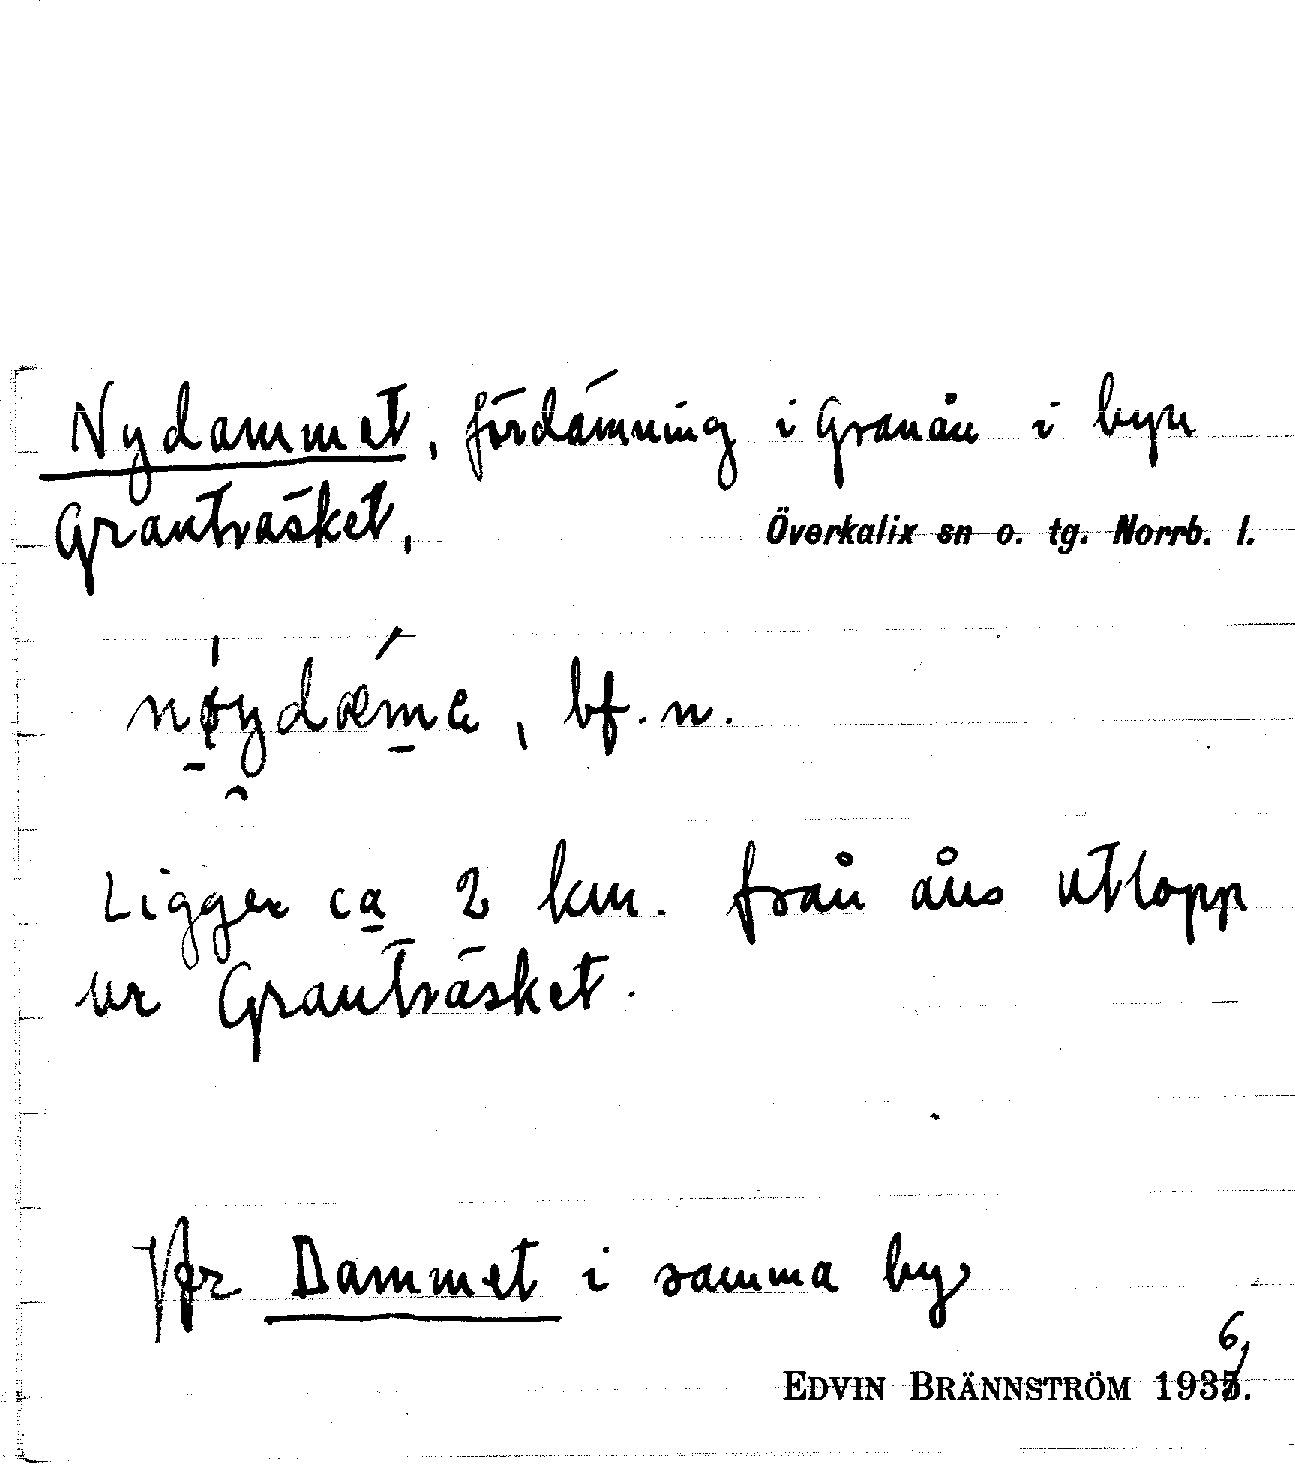 Nydammet, fördämning i Granån i byn
Granträsket,
Överkalix sn o. tg. Norrb. l.
nøydæme, bf. n.
Ligger ca 2 km. från åns utlopp
ur Granträsket.
Jfr Dammet i samma by
6
EDVIN BRÄNNSTRÖM 1935.